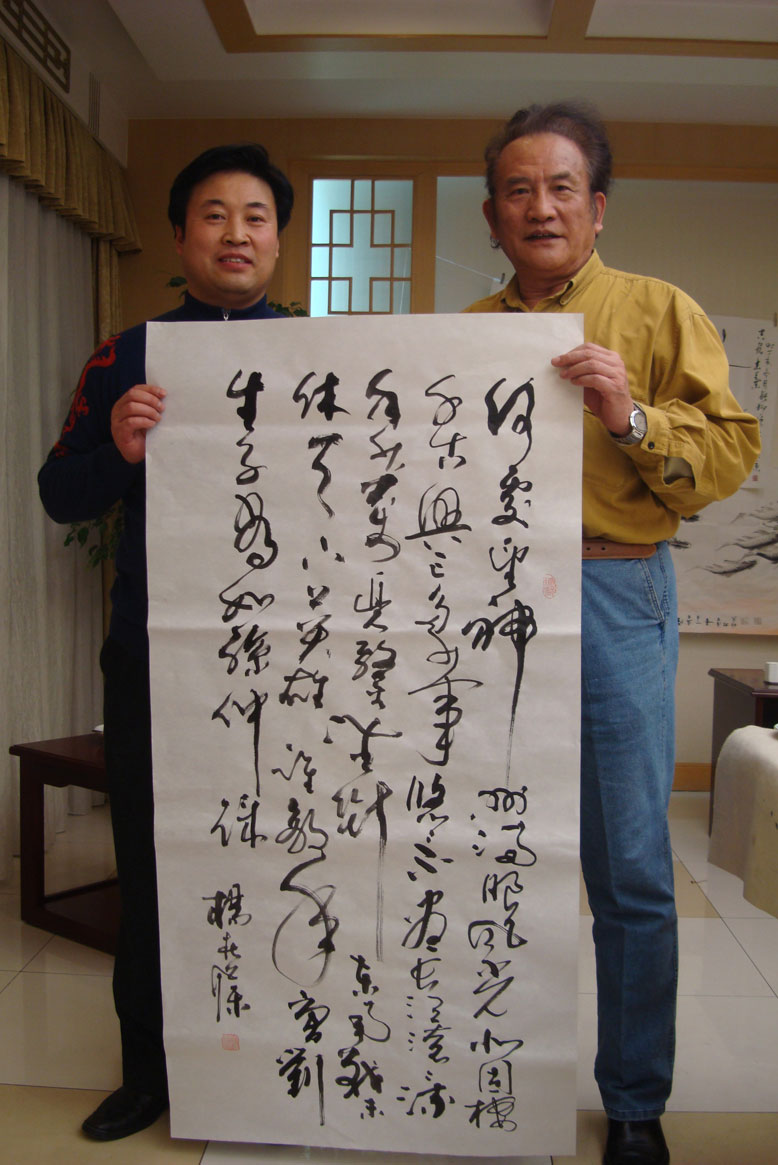 何處望神州滿眼風光北固樓
千古興亡多少事悠悠不盡長江滾滾流
年少萬兜鍪坐斷東南戰未
休天下英雄誰敵手曹劉
生子當如孫仲謀
楊在葆